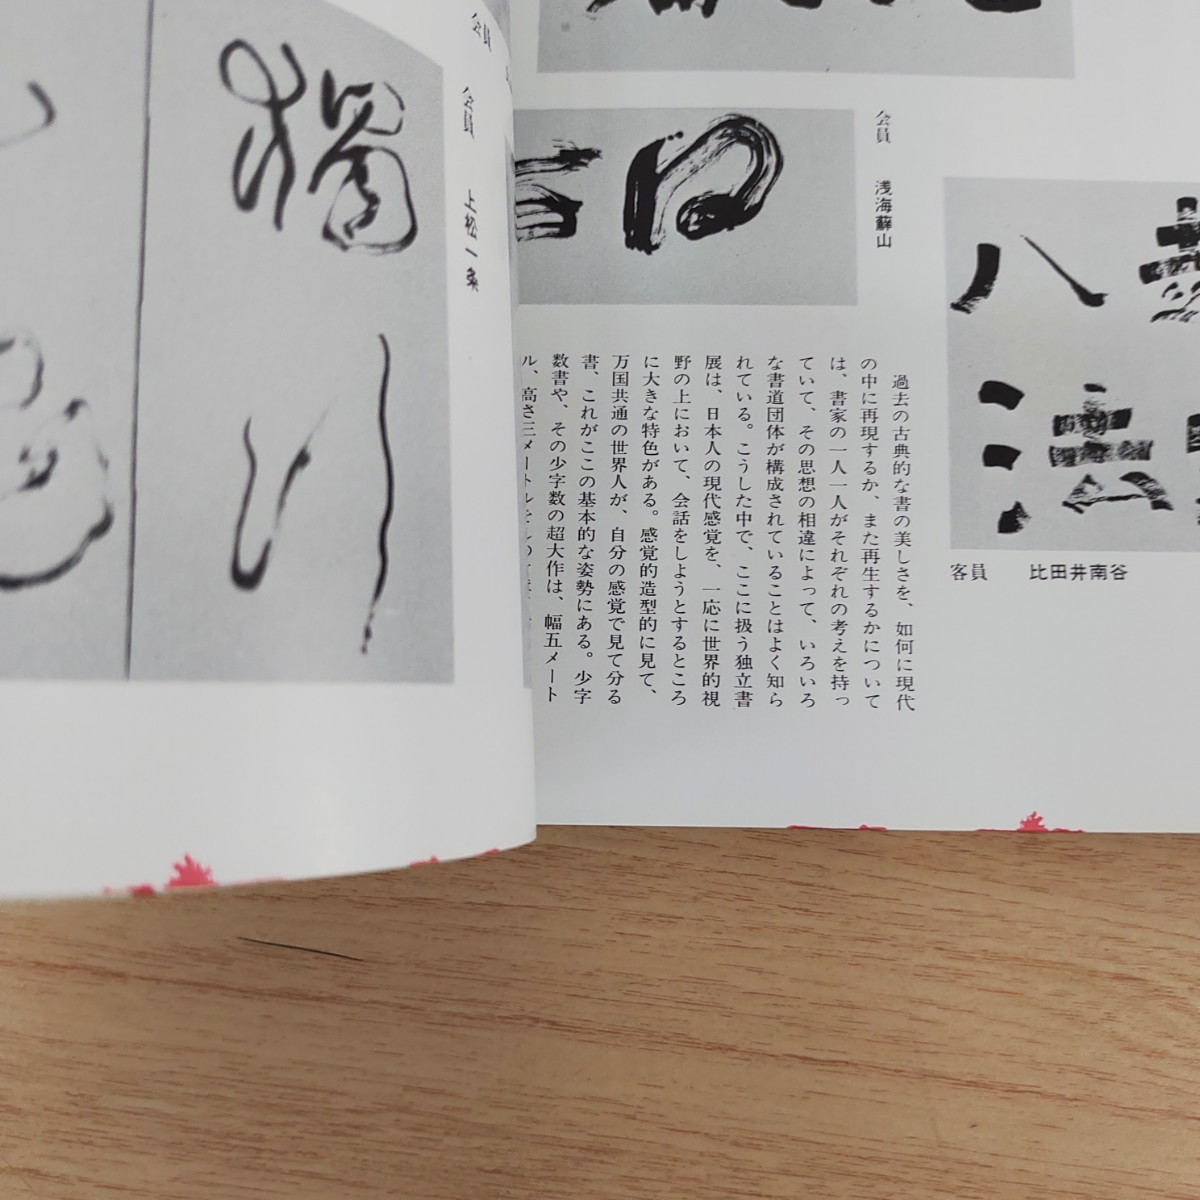 会員　浅海蘇山
客員　比田井南谷
過去の古典的な書の美しさを、如何に現代
の中に再現するか、また再生するかについて
は、書家の一人一人がそれぞれの考えを持っ
ていて、その思想の相違によって、いろいろ
な書道団体が構成されていることはよく知ら
れている。こうした中で、ここに扱う独立書
展は、日本人の現代感覚を、一応に世界的視
野の上において、会話をしようとするところ
に大きな特色がある。感覚的造型的に見て、
万国共通の世界人が、自分の感覚で見て分る
書、これがここの基本的な姿勢にある。少字
数書や、その少字数の超大作は、幅五メート
ル、高さ三メートル
会員
会員　上松一条
獨
八
法